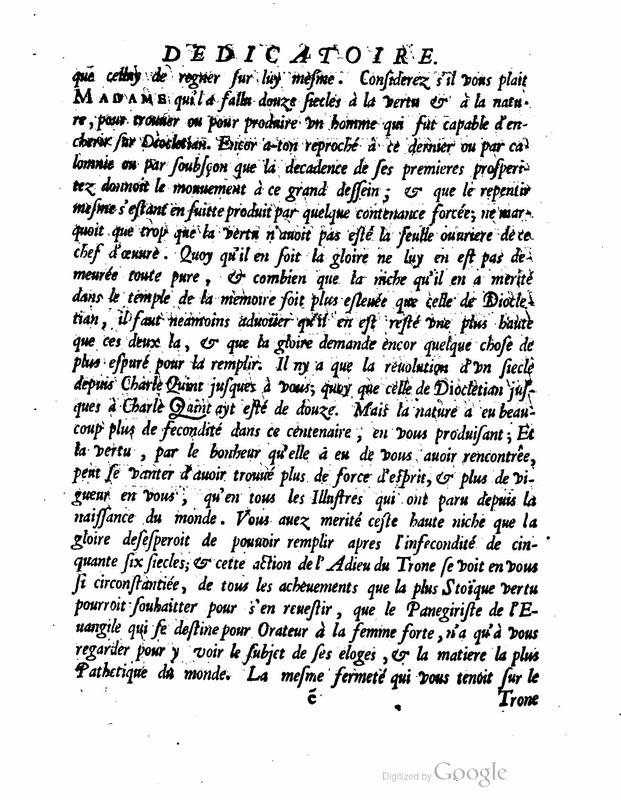 DEDICATOIRE.
que celluy de regner ſur luy meſme. Conſiderez s'il vous plait
MADAME qu'il a fallu douze ſiecles à la vertu & à la natu-
re, pour trouuer ou pour produire vn homme qui fut capable d'en-
cherir ſur Diocletian. Encor a-ton reproché à ce dernier ou par ca-
lomnie ou par ſoubſçon que la decadence de ſes premieres proſperi-
tez donnoit le mouuement à ce grand deſſein; & que le repentir
meſme s'eſtant en ſuitte produit par quelque contenance forcée; ne mar-
quoit que trop que la vertu n'auoit pas eſté la ſeulle ouuriere de ce
chef d'œuure. Quoy qu'il en ſoit la gloire ne luy en eſt pas de-
meurée toute pure, & combien que la niche qu'il en a merité
dans le temple de la memoire ſoit plus eſleuée que celle de Diocle-
tian, il faut neamoins aduoüer qu'il en eſt reſté vne plus haute
que ces deux la, & que la gloire demande encor quelque choſe de
plus eſpuré pour la remplir. Il ny a que la reuolution d'vn ſiecle
depuis Charle Quint juſques à vous; quoy que celle de Diocletian juſ-
ques à Charle Quint ayt eſté de douze. Mais la nature a eu beau-
coup plus de fecondité dans ce centenaire, en vous produiſant; Et
la vertu, par le bonheur qu'elle à eu de vous auoir rencontrée,
peut ſe vanter d'auoir trouué plus de force d'eſprit, & plus de vi-
gueur en vous, qu'en tous les Illuſtres qui ont paru depuis la
naiſſance du monde. Vous auez merité ceſte haute niche que la
gloire deſeſperoit de pouuoir remplir apres l'infecondité de cin-
quante ſix ſiecles; & cette action de l'Adieu du Trone ſe voit en vous
ſi circonſtantiée, de tous les acheuements que la plus Stoïque vertu
pourroit ſouhaitter pour s'en reueſtir, que le Panegiriſte de l'E-
uangile qui ſe deſtine pour Orateur à la femme forte, n'a qu'à vous
regarder pour y voir le ſubjet de ſes eloges, & la matiere la plus
Pathetique du monde. La meſme fermeté qui vous tenoit ſur le
ẽ Trone
Digitized by Google